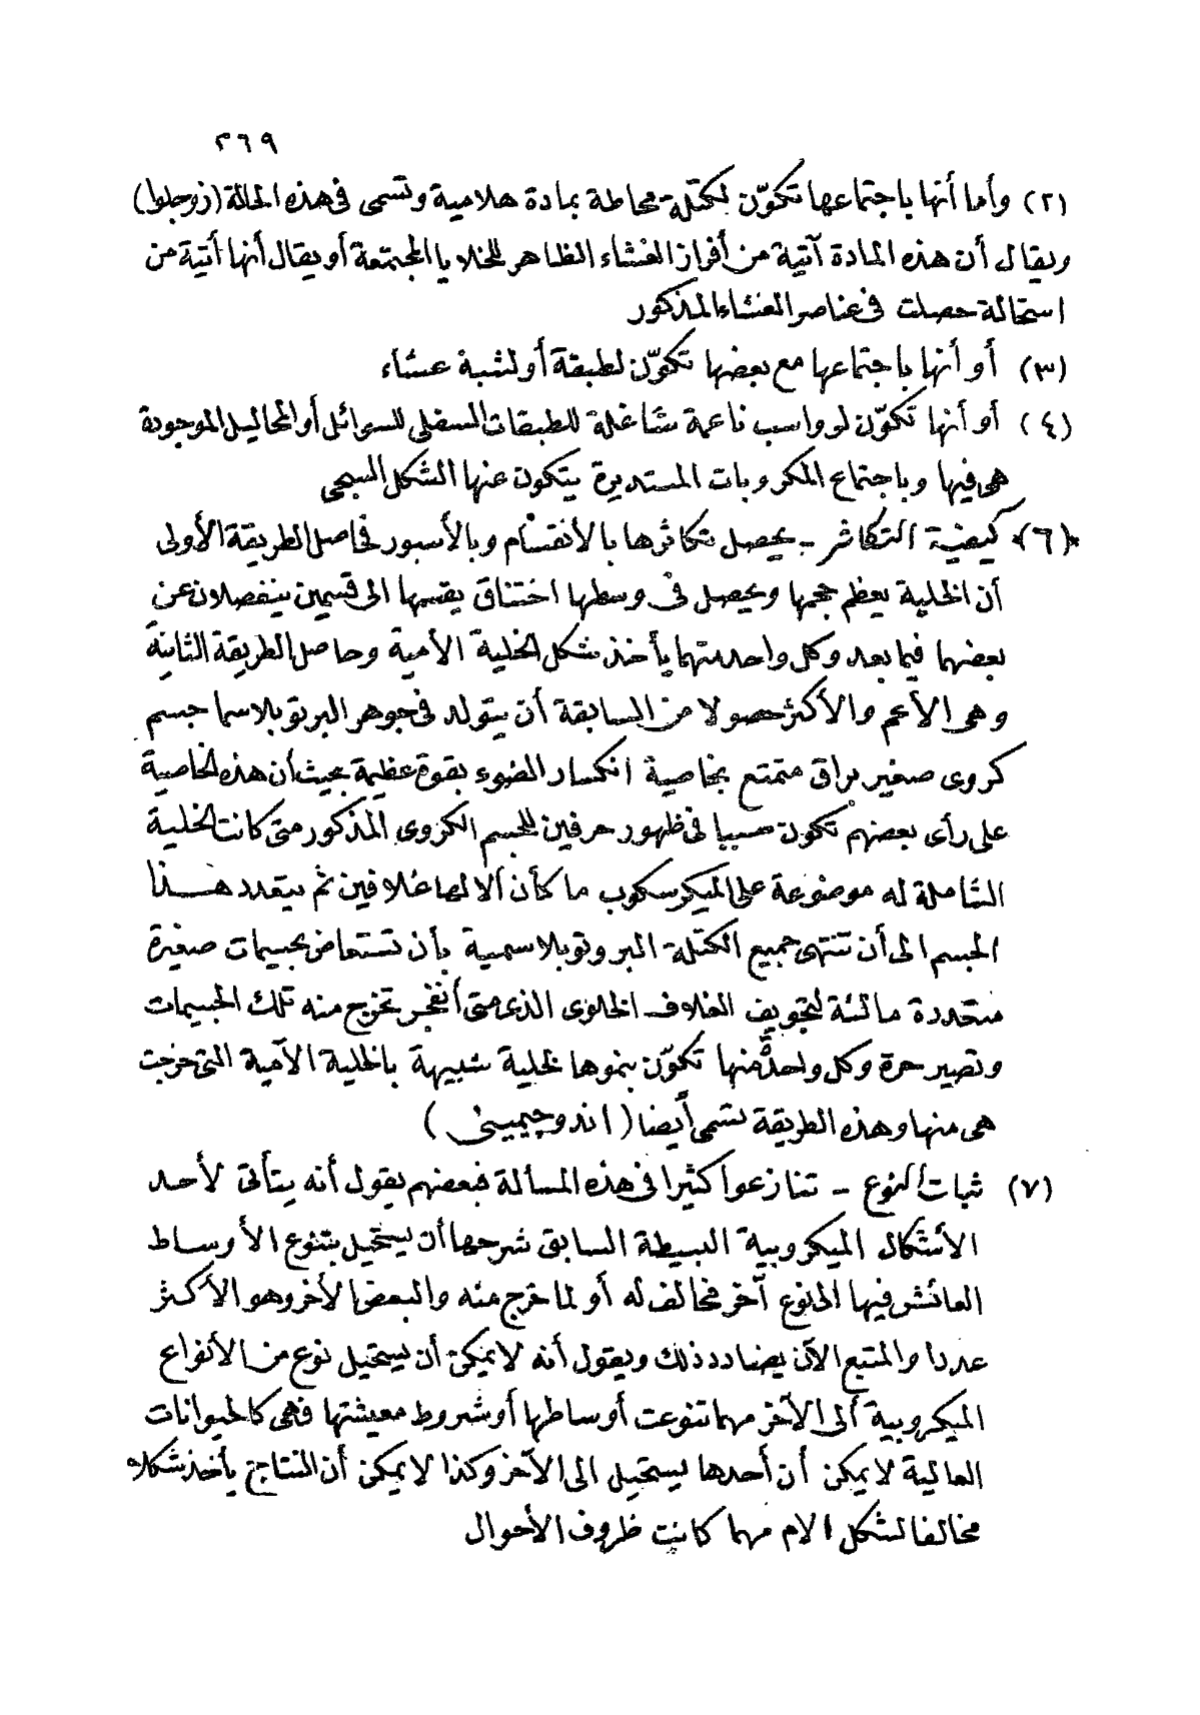 ٢٦٩
(٢) وأما أنها باجتماعها تكوّن لكتلة محاطة بمادة هلامية وتسمى فى هذه الحالة (زوجلوا)
ويقال أن هذه المادة آتية من أفراز الغشاء الظاهر للخلايا المجتمعة أو يقال أنها أتية من
استحالة حصلت فى عناصر الغشاء المذكور
(٣) أو أنها باجتماعها مع بعضها تكوّن لطبقة أو لشبه غشاء
(٤) أو أنها تكوّن لرواسب ناعمة شاغلة للطبقات السفلى للسوائل أو المحاليل الموجودة
هى فيها وباجتماع المكروبات المستديرة يتكون عنها الشكل السبحى
(٦) كيفية التكاثر - يحصل تكاثرها بالأنقسام وبالأسبور فحاصل الطريقة الأولى
أن الخلية يعظم حجمها ويحصل فى وسطها اختناق يقسمها الى قسمين ينفصلان عن
بعضهما فيما بعد وكل واحد منهما يأخذ شكل الخلية الأمية وحاصل الطريقة الثانية
وهى الأعم والأكثر حصولا من السابقة أن يتولد فى جوهر البرتوبلاسما جسم
كروى صغير براق متمتع بخاصية انكسار الضوء بقوة عظيمة بحيث أن هذه الخاصية
على رأى بعضهم تكون سببا فى ظهور حرفين للجسم الكروى المذكور متى كانت الخلية
الشاملة له موضوعة على الميكرسكوب ما كأن الا لها غلافين ثم يتعدد هذا
الجسم الى أن تنتهى جميع الكتلة البروتوبلاسمية بأن تستعاض بجسيمات صغيرة
متعددة مالئة لتجويف الغلاف الخلوى الذى متى أنفجر تخرج منه تلك الجسيمات
وتصير حرة وكل واحدة منها تكوّن بنموها لخلية شبيهة بالخلية الآمية التى خرجت
هى منها وهذه الطريقة تسمى أيضا (اندوجيميى)
(٧) ثبات النوع - تنازعوا كثيرا فى هذه المسألة فبعضهم يقول أنه يتأتى لأحد
الأشكال الميكروبية البسيطة السابق شرحها أن يستحيل بتنوع الأوساط
العائش فيها الى نوع آخر مخالف له أو لما خرج منه والبعض الأخر وهو الأكثر
عددا والمتبع الآن يضادد ذلك ويقول أنه لا يمكن أن يستحيل نوع من الأنواع
الميكروبية ألى الآخر مهما تنوعت أوساطها أو شروط معيشتها فهى كالحيوانات
العالية لا يمكن أن أحدها يستحيل الى الآخر وكذا لا يمكن أن النتاج يأخذ شكلا
مخالفا لشكل الام مهما كانت ظروف الأحوال